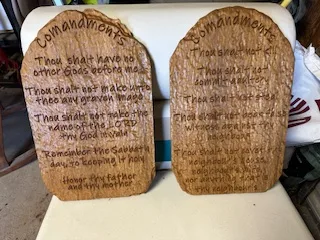 Comandments
Thou shalt have no
other Gods before me
Thou shalt not make unto
thee any graven image
Thou shalt not take the
name of the LORD
thy God in vain
Remember the Sabbath
day to keeping it holy
Honor thy father
and thy mother
Comandments
Thou shalt not
Thou shalt not
commit adultery
Thou shalt not steal
Thou shalt not bear false
witness against thy
neighbor
Thou shalt not
neighbor's house
nor
thy neighbor's